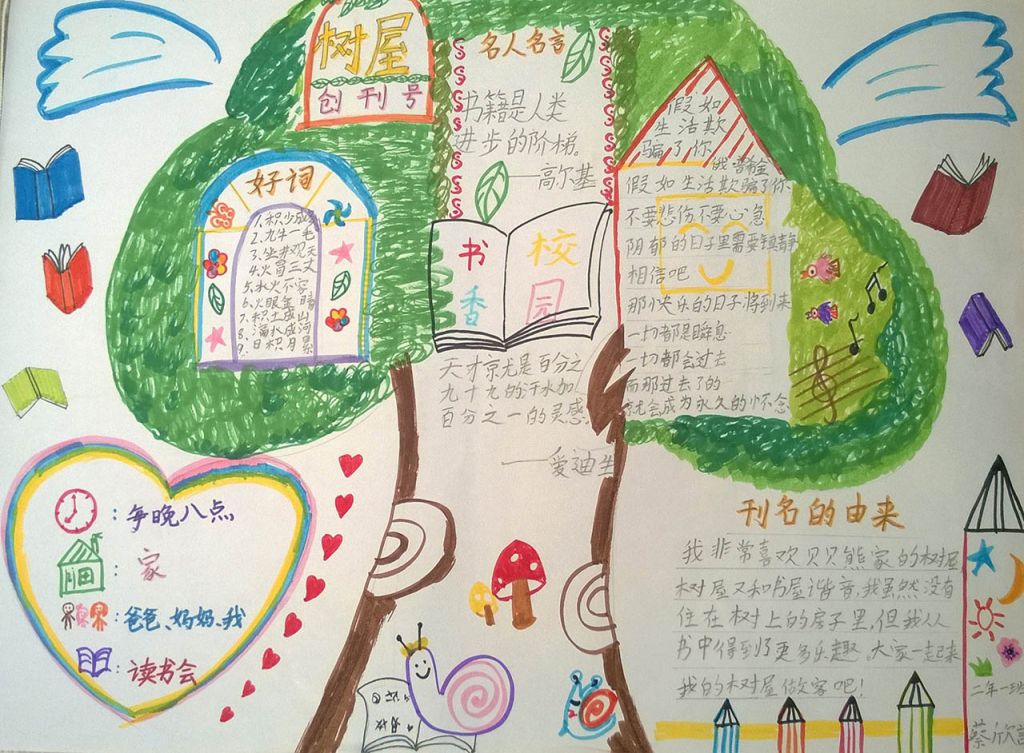 树屋
创刊号
名人名言
书籍是人类
进步的阶梯。
——高尔基
好词
1.积少成多
2.九牛一毛
3.坐井观天
4.火冒三丈
5.水火不容
6.火眼金睛
7.积土成山
8.滴水成河
9.日积月累
书香
校园
天才京尤是百分之
九十九的汗水加
百分之一的灵感
——爱迪生
假如
生活欺
骗了你
普希金
假如生活欺骗了你
不要悲伤不要心急
阴郁的日子里需要镇静
相信吧
那快乐的日子将到来
一切都是瞬息
一切都会过去
而那过去了的
就会成为永久的怀念
:每晚八点
:家
:爸爸、妈妈、我
:读书会
刊名的由来
我非常喜欢贝贝熊家的树屋
树屋又和书屋谐音,我虽然没有
住在树上的房子里,但我从
书中得到了更多乐趣。大家一起来
我的树屋做客吧!
二年一班
蔡欣